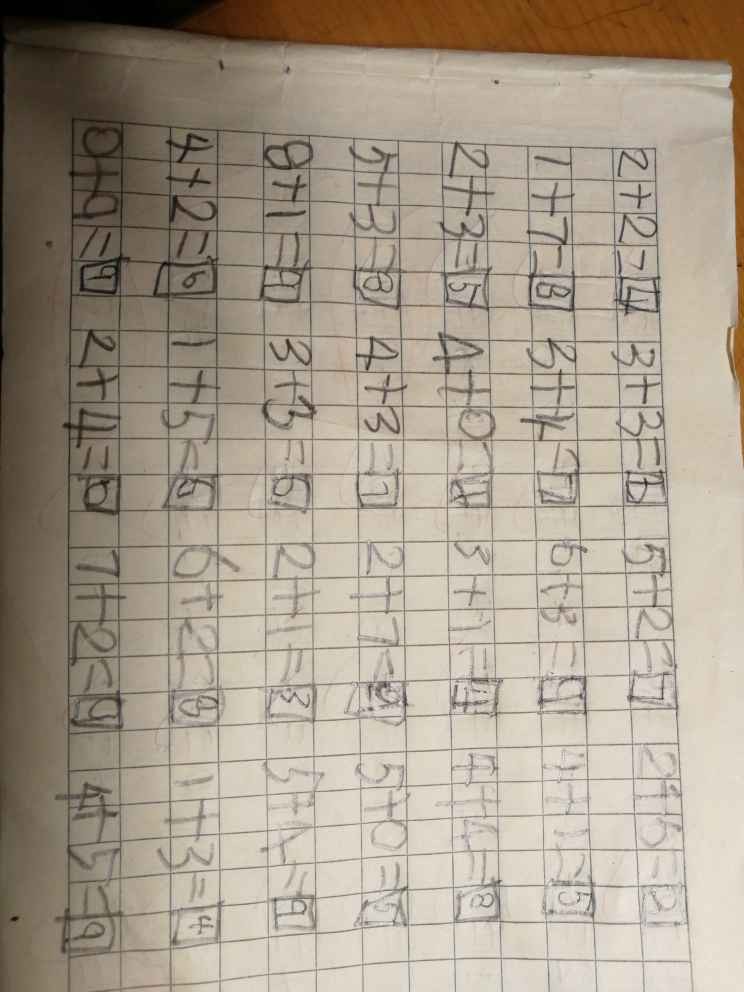 2+2=4 3+3=6 5+2=7 2+6=
1+7=8 3+4=7 6+3=9 4+1=5
2+3=5 4+0=4 3+1=4 4+4=8
5+3=8 4+3=7 2+7=9 5+0=5
8+1=9 3+3=6 2+1=3 5+4=9
4+2=6 1+5=6 6+2=8 1+3=4
0+9=9 2+4=6 7+2=9 4+5=9